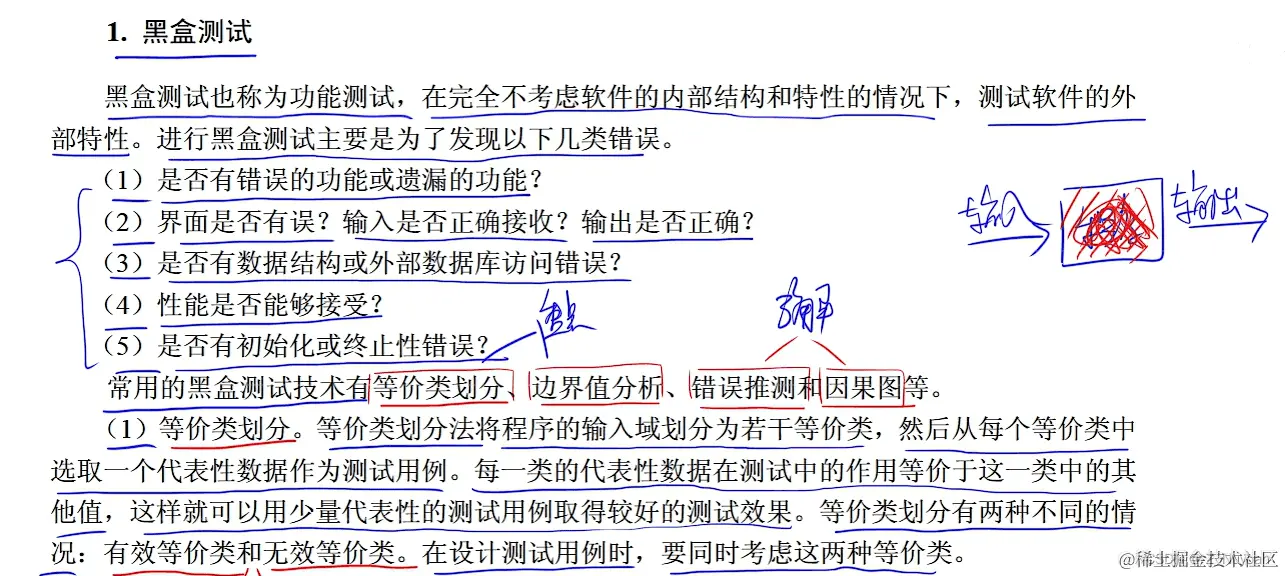 1. 黑盒测试
黑盒测试也称为功能测试，在完全不考虑软件的内部结构和特性的情况下，测试软件的外
部特性。进行黑盒测试主要是为了发现以下几类错误。
（1）是否有错误的功能或遗漏的功能？
（2）界面是否有误？输入是否正确接收？输出是否正确？
输入
输出
（3）是否有数据结构或外部数据库访问错误？
（4）性能是否能够接受？
重点
了解
（5）是否有初始化或终止性错误？
常用的黑盒测试技术有等价类划分、边界值分析、错误推测和因果图等。
（1）等价类划分。等价类划分法将程序的输入域划分为若干等价类，然后从每个等价类中
选取一个代表性数据作为测试用例。每一类的代表性数据在测试中的作用等价于这一类中的其
他值，这样就可以用少量代表性的测试用例取得较好的测试效果。等价类划分有两种不同的情
况：有效等价类和无效等价类。在设计测试用例时，要同时考虑这两种等价类。
@稀土掘金技术社区